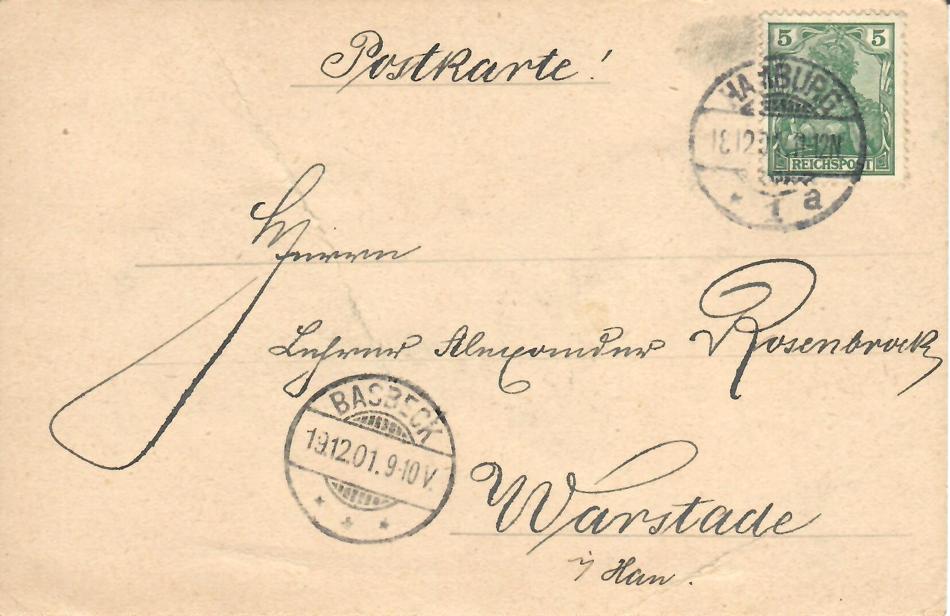 Postkarte!
5 5
REICHSPOST
HARBURG
1 a
Herrn
Lehrer Alexander Rosenbrock
BASBECK
19.12.01. 9-10 V.
Warstade
i/ Han.